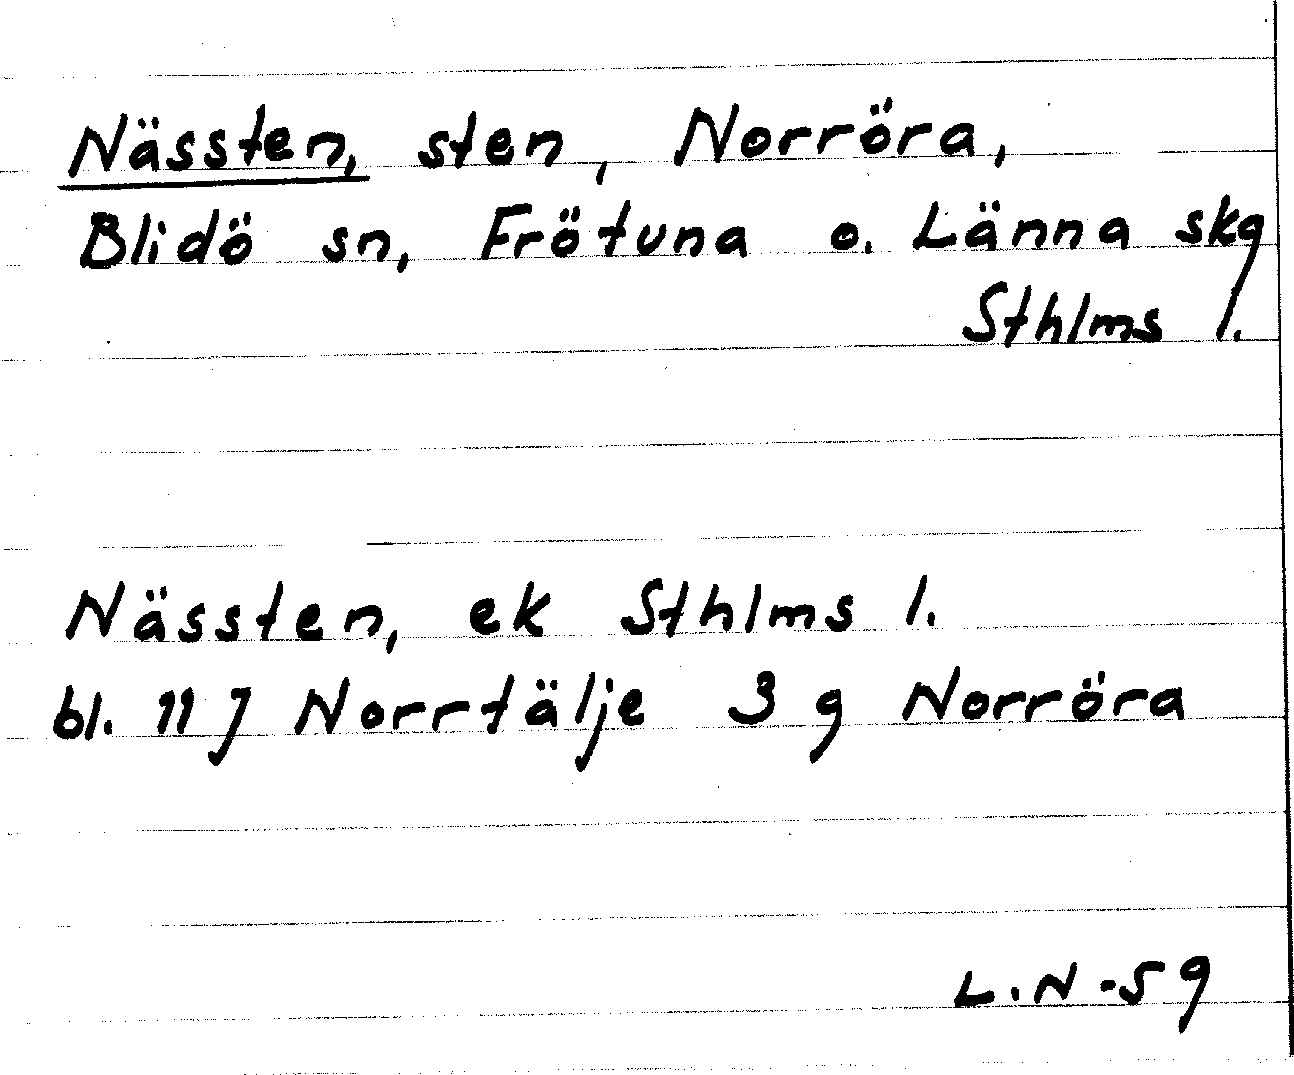 Nässten, sten, Norröra,
Blidö sn, Frötuna o. Länna skg
Sthlms l.
Nässten, ek Sthlms l.
bl. 11 J Norrtälje 3 g Norröra
L.N -59